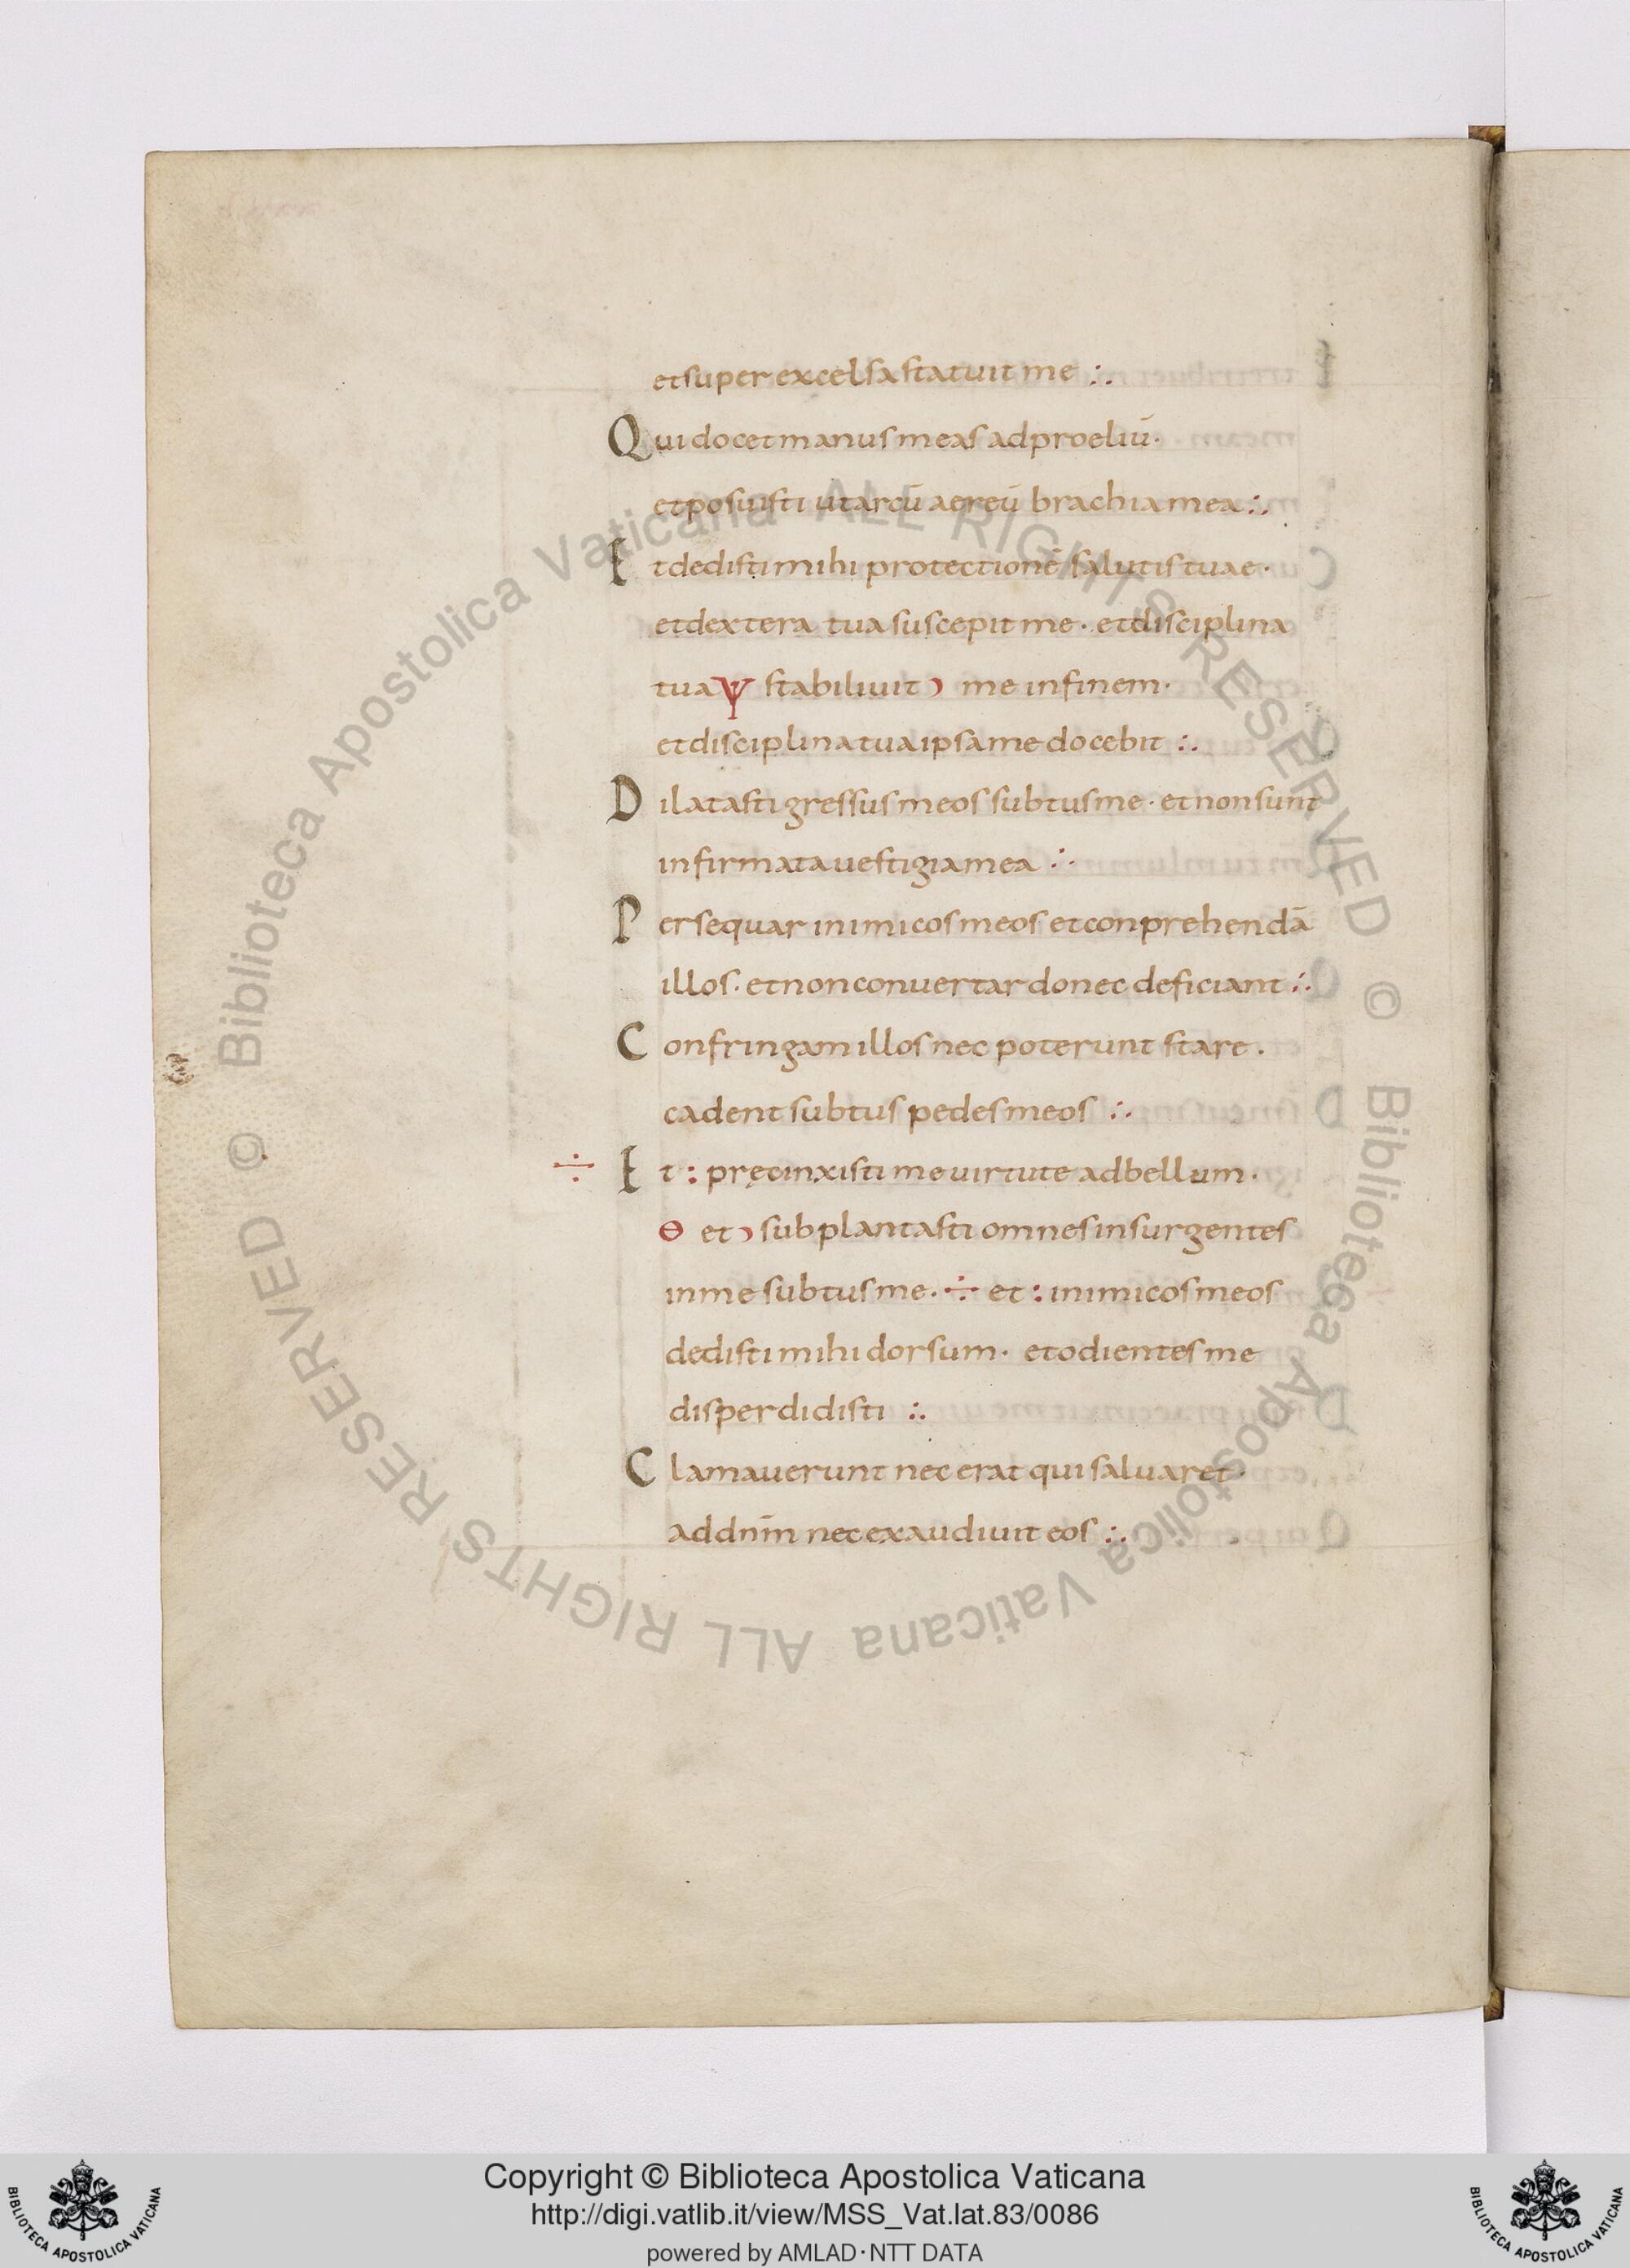 et super excelsa statuit me :.
Qui docet manus meas ad proeliū·
et posuisti ut arcū aereū brachia mea :.
Et dedisti mihi protectionē salutis tuae·
et dextera tua suscepit me· et disciplina
tua ѱ stabiliuit ) me in finem·
et disciplina tua ipsa me docebit :.
Dilatasti gressus meos subtus me· et non sunt
infirmata uestigia mea :.
Persequar inimicos meos et conprehendā
illos· et non conuertar donec deficiant :.
Confringam illos nec poterunt stare·
cadent subtus pedes meos :.
÷ Et : pręcinxisti me uirtute ad bellum·
ɵ et ) subplantasti omnes insurgentes
in me subtus me· ÷ et : inimicos meos
dedisti mihi dorsum· et odientes me
disperdidisti :.
Clamauerunt nec erat qui saluaret·
ad dn̄m nec exaudiuit eos :.
© Biblioteca Apostolica Vaticana ALL RIGHTS RESERVED
© Biblioteca Apostolica Vaticana ALL RIGHTS RESERVED
Copyright © Biblioteca Apostolica Vaticana
http://digi.vatlib.it/view/MSS_Vat.lat.83/0086
powered by AMLAD·NTT DATA
BIBLIOTECA APOSTOLICA VATICANA
BIBLIOTECA APOSTOLICA VATICANA